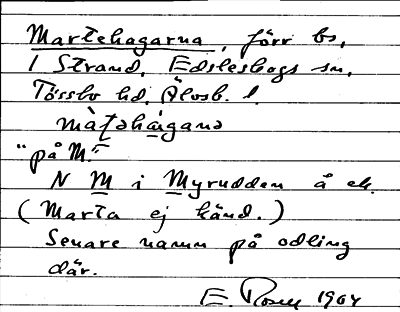 Martehagarna, förr bs,
1 Strand, Edsleskogs sn,
Tössbo hd, Älvsb. l.
màṭəhàganə
"på M."
N M i Myrudden å ek.
(Marta ej känd.)
Senare namn på odling
där.
E. 1904